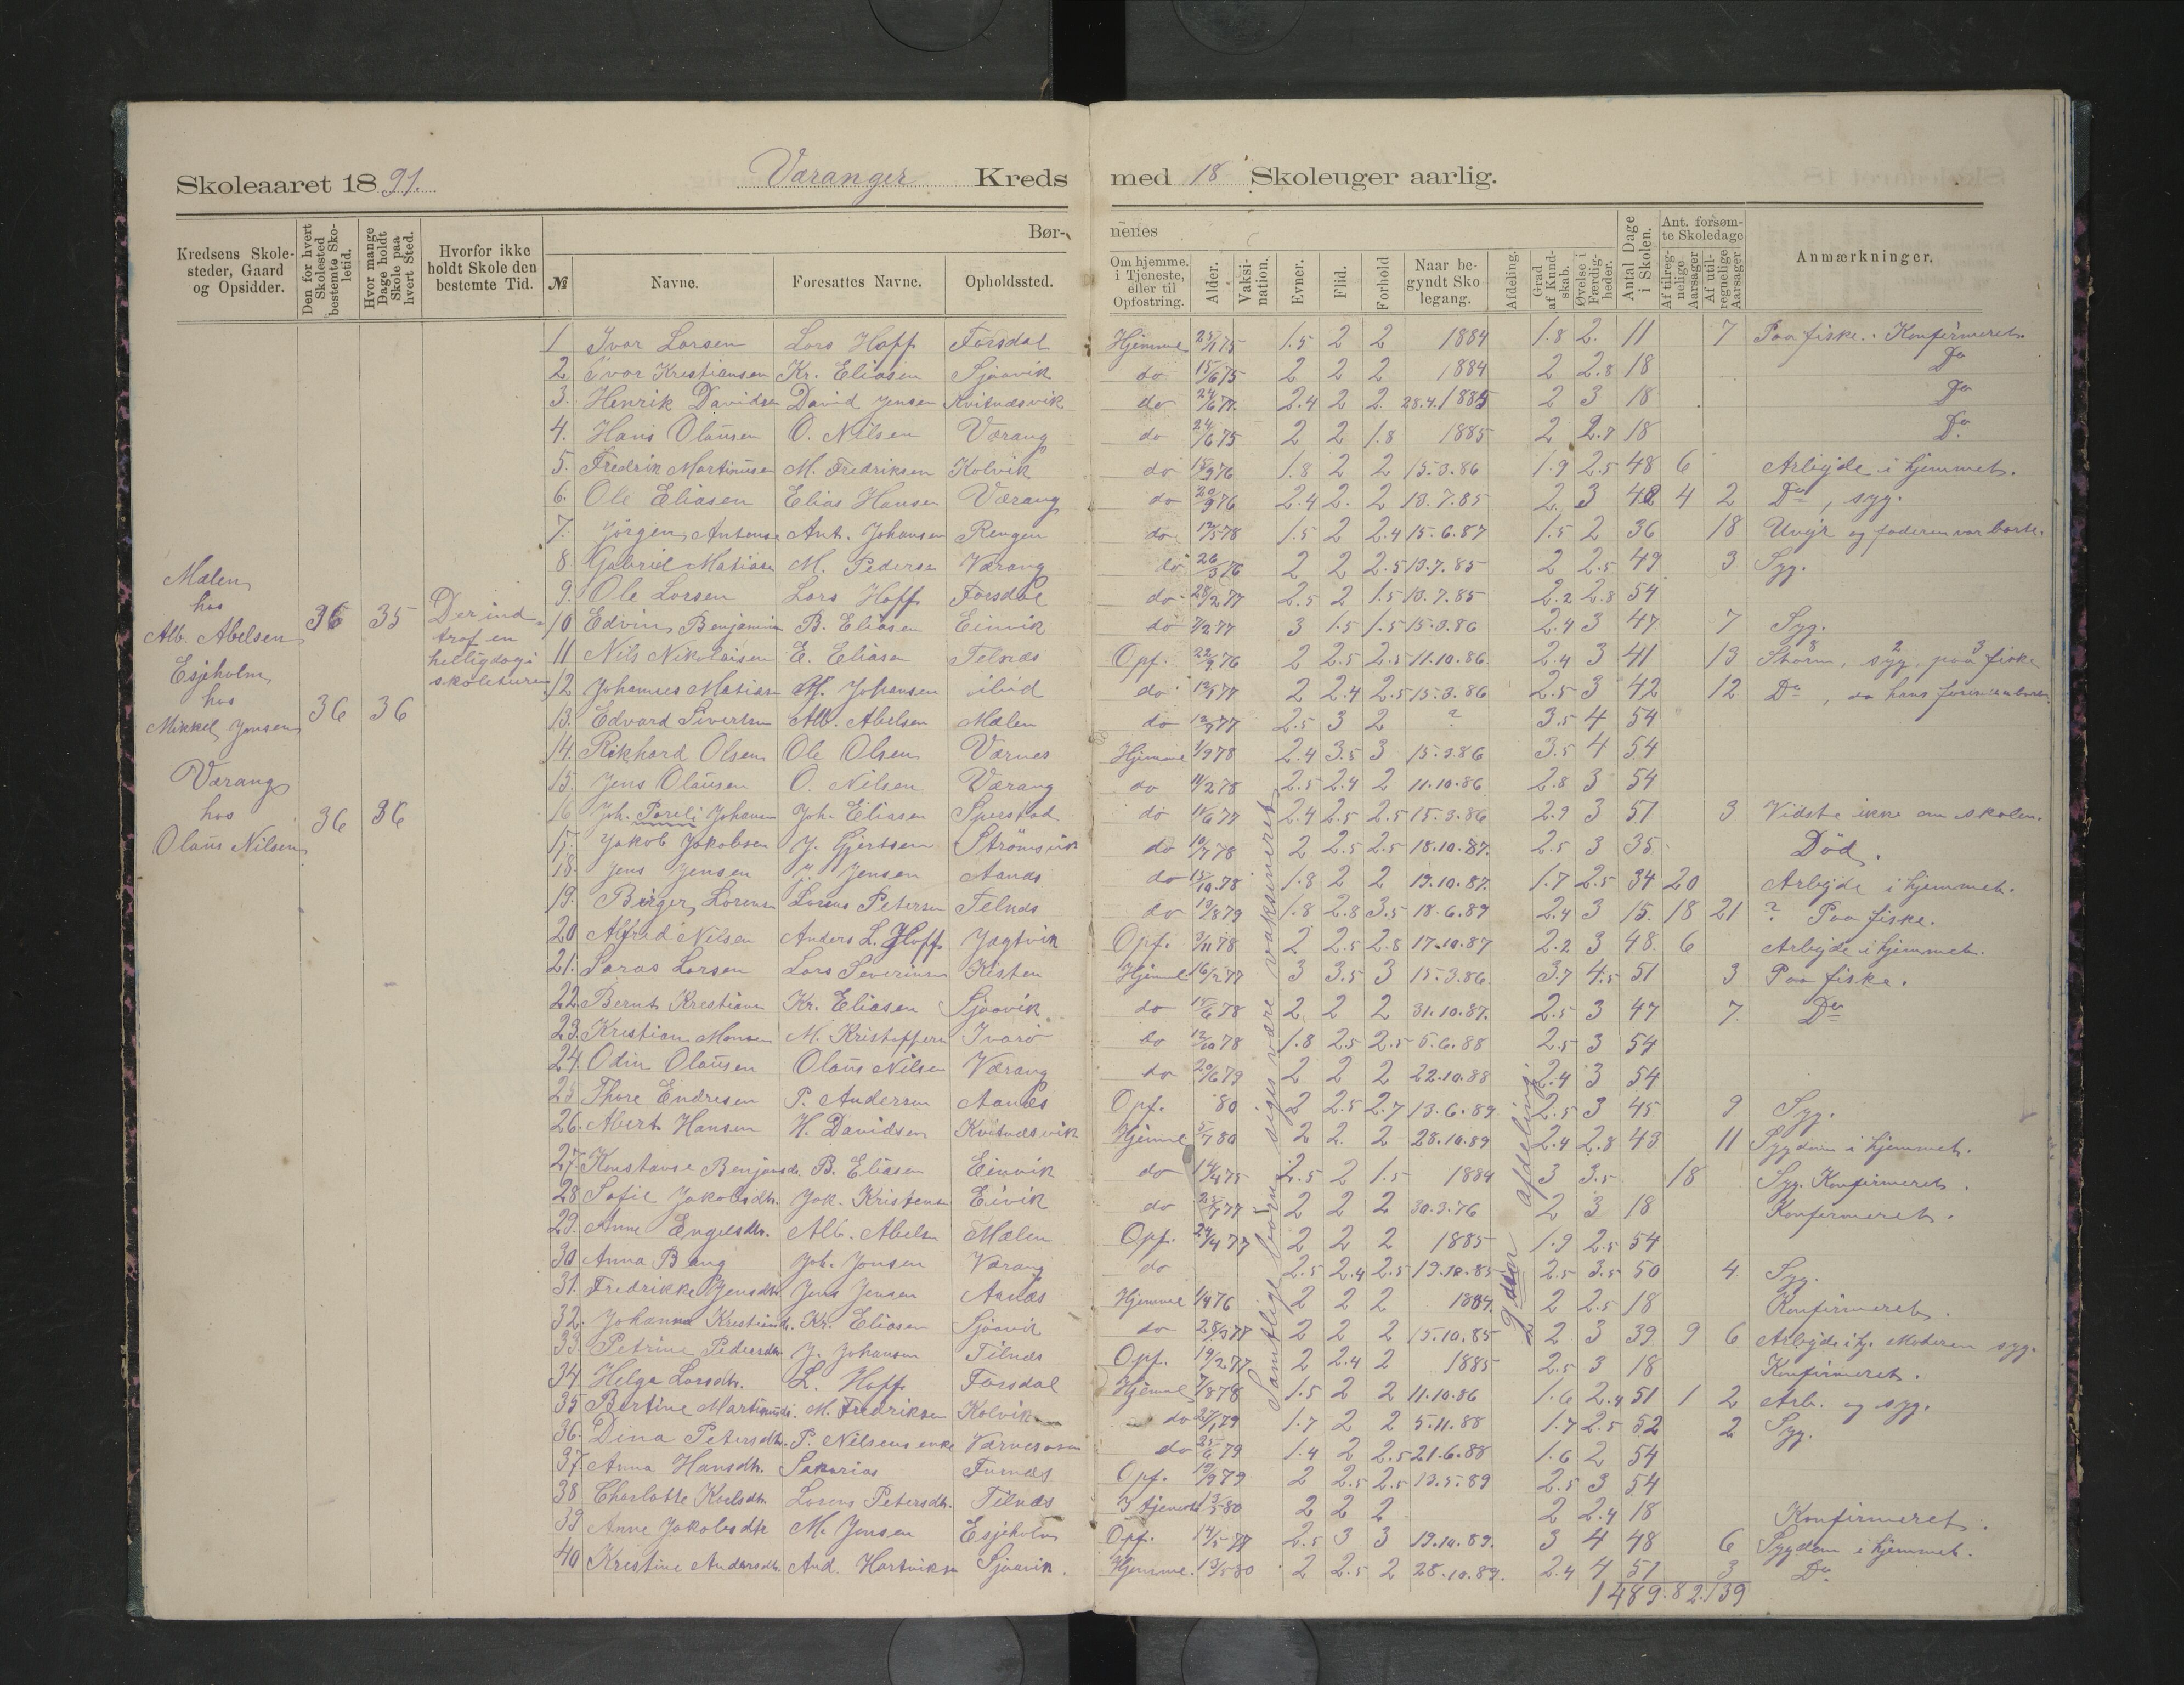 Skoleaaret 1891. Væranger Kreds med 18 Skoleuger aarlig.
Kredsens Skolesteder, Gaard og Opsidder.
Den for hvert Skolested bestemte Skoletid.
Hvor mange Dage holdt Skole paa hvert Sted.
Hvorfor ikke holdt Skole den bestemte Tid.
Bør- nenes
№ Navne. Foresattes Navne. Opholdssted.
Om hjemme. i Tjeneste, eller til Opfostring. Alder. Vaksination. Evner. Flid. Forhold Naar begyndt Skolegang. Afdeling. Grad af Kundskab. Øvelse i Færdigheder. Antal Dage i Skolen. Ant. forsømte Skoledage Af tilregnelige Aarsager Af utilregnelige Aarsager Anmærkninger.
Mælen
hos
Alb. Abelsen 36 35 Der indtraf en helligdag i skoleturen
Esjeholm
hos
Mikkel Jonsen 36 36
Værang
hos
Olaus Nilsen 36 36
1 Ivar Larsen Lars Hoff Forsdal Hjemme 75 1.5 2 2 1884 1.8 2. 11 7 Paa fiske. Konfirmeret.
2 Ivar Kristiansen Kr. Eliasen Sjaavik do 15/6 75 2 2 2 1884 2 2.8 18 Do
3. Henrik Davidsen David Jensen Kvitnæsvik do 24/6 77. 2.4 2 2. 28.4.1885 2 3 18 Do
4. Hans Olausen O. Nilsen Værang do 24/6 75 2 2 1.8 1885 2 2.7 18 Do
5. Fredrik Martinusen M. Fredriksen Kolvik do 76 1.8 2 2 15.3.86 1.9 2.5 48 6 Arbejde i hjemmet.
6. Ole Eliasen Elias Hansen Værang do 76 2.4 2. 2 13.7.85 2 3 48 4 2 Do, syg.
7. Jørgen Antonsen Ant. Johansen Rengen do 78 1.5 2 2.4 15.6.87 1.5 2 36 18 Uvejr og faderen var borte.
8 Gabriel Matiasen M. Pedersen Værang do 76 2 2 2.5 13.7.85 2 2.5 49 3 Syg.
9. Ole Larsen Lars Hoff Forsdal do 28/2 77 2.5 2 1.5 13.7.85 2.2 2.8 54
10 Edvin Benjamin B. Eliasen Einvik do 77 3 1.5 1.5 15.3.86 2.4 3 47 7 Syg.
11 Nils Nikolaisen E. Eliasen Telnæs Opf. 22/9 76 2 2.5 2.5 11.10.86. 2.4 3 41 13 Storm, 8 syg, 2 paa fiske 3
12 Johannes Matiasen M. Johansen ibid do 77 2 2.4 2.5 15.3.86 2.5 3 42 12 Do
13. Edvard Sivertsen Alb. Abelsen Mælen do 77 2.5 3 2 ? 3.5 4 54
14. Rikhard Olsen Ole Olsen Værnes Hjemme 1/9 78 2.4 3.5 3 15.3.86 3.5 4 54
15. Jens Olausen O. Nilsen Værang do 11/2 78 2.5 2.4 2 11.10.86 2.8 3 54
16 Joh. Pareli Johansen Joh. Eliasen Sperstad do 11/6 77 2.4 2.5 2.5 15.3.86 2.9 3 51 3 Vidste ikke om skolen.
17. Jakob Jakobsen J. Gjertsen Strømsvik do 10/7 78 2 2.5 2.5 18.10.87. 2.5 3 35 Død.
18. Jens Jensen J. Jensen Aanæs do 15/10.78 1.8 2 2 19.10.87. 1.7 2.5 34 20 Arbejde i hjemmet.
19. Birger Lorensen Lorens Petersen Telnæs do 10/8 79 1.8 2.8 3.5 18.6.89 2.4 3 15. 18 21 ? Paa fiske.
20 Alfred Nilsen Anders L. Hoff Jægtvik Opf. 3/11 78 2 2.5 2.8 17.10.87 2.2 3 48. 6 Arbejde i hjemmet.
21. Saras Larsen Lars Severinsen Kisten Hjemme 16/2 77 3 3.5 3 15.3.86. 3.7 4.5 51 3 Paa fiske.
22. Bernt Kristiansen Kr. Eliasen Sjaavik do 15/6 78 2 2 2 31.10.87. 2.5 3 47 7 Do
23. Kristian Monsen M. Kristoffersen Ivarø do 12/10 78 1.8 2.5 2.5 5.6.88 2.5 3 54
24. Odin Olausen Olaus Nilsen Værang do 20/6 79 2 2 2 22.10.88 2.4 3 54
25 Thore Endresen P. Andersen Aanæs Opf. 80 2 2.5 2.7 13.6.89 2.5 3 45 9 Syg.
26. Albert Hansen H. Davidsen Kvitnæsvik Hjemme 5/7 80 2 2. 2 28.10.89 2.4 2.8 43 11 Sygdom i hjemmet.
27. Konstanse Benjansdr. B. Eliasen Einvik do 14/4 75 2.5 2 1.5 1884 3 3.5 18 Syg. Konfirmeret.
28 Sofie Jakobsdtr. Jak. Kristensen Eivik do 77 2 2 2 30.3.76 2 3 18 Konfirmeret.
29. Anne Engelsdtr. Alb. Abelsen Mælen Opf. 24/4 77 2 2 2 1885 1.9 2.5 54
30 Anna Bang Joh. Jonsen Værang do 2.5 2.4 2.5 19.10.85 2.5 3.5 50 4 Syg.
31. Fredrikke Jensdtr. Jens Jensen Aanæs Hjemme 76 2 2 2 1884. 2 2.5 18 Konfirmeret.
32. Johanna Kristiansdr. Kr. Eliasen Sjaavik do 2 2 2 15.10.85 2 3 39 9 6 Arbejde i hj. Moderen syg.
33. Petrine Pedersdtr J. Johansen Telnæs Opf. 14/2 77 2 2.4 2 1885 2.5 3 18 Konfirmeret.
34. Helga Larsdtr. L. Hoff Forsdal Hjemme 7/8 78 1.5 2 2 11.10.86 1.6 2.4 51 1 2 Arb. og syg.
35 Bertine Martinusdr. M. Fredriksen Kolvik do 27/1 79 1.7 2 2 5.11.88 1.7 2.5 52 2 Syg.
36. Dina Petersdtr. P. Nilsens enke Værnesosen do 25/6 79 1.4 2 2.5 21.6.88 1.6 2 54
37. Anna Hansdtr. Sakarias Furnæs Opf. 79 2 2.5 2.5 13.5.89 2.5 3 54
38 Charlotte Karlsdtr. Lorens Petersdtr. Telnæs I tjeneste 80 2 2 2 2 2.4 18 Konfirmeret.
39 Anne Jakobsdtr M. Jensen Esjeholm Opf. 14/5 77 2.5 3 3 19.10.89. 3 4 48 6 Sygdom i hjemmet.
40 Kristine Andersdtr. And. Hartviksen Sjaavik. Hjemme. 13/5 80 2 2.5 2 28.10.89. 2.4 4 51 3 Do
1489. 82. 139
Samtlige børn siges være vaksineret
2den afdeling